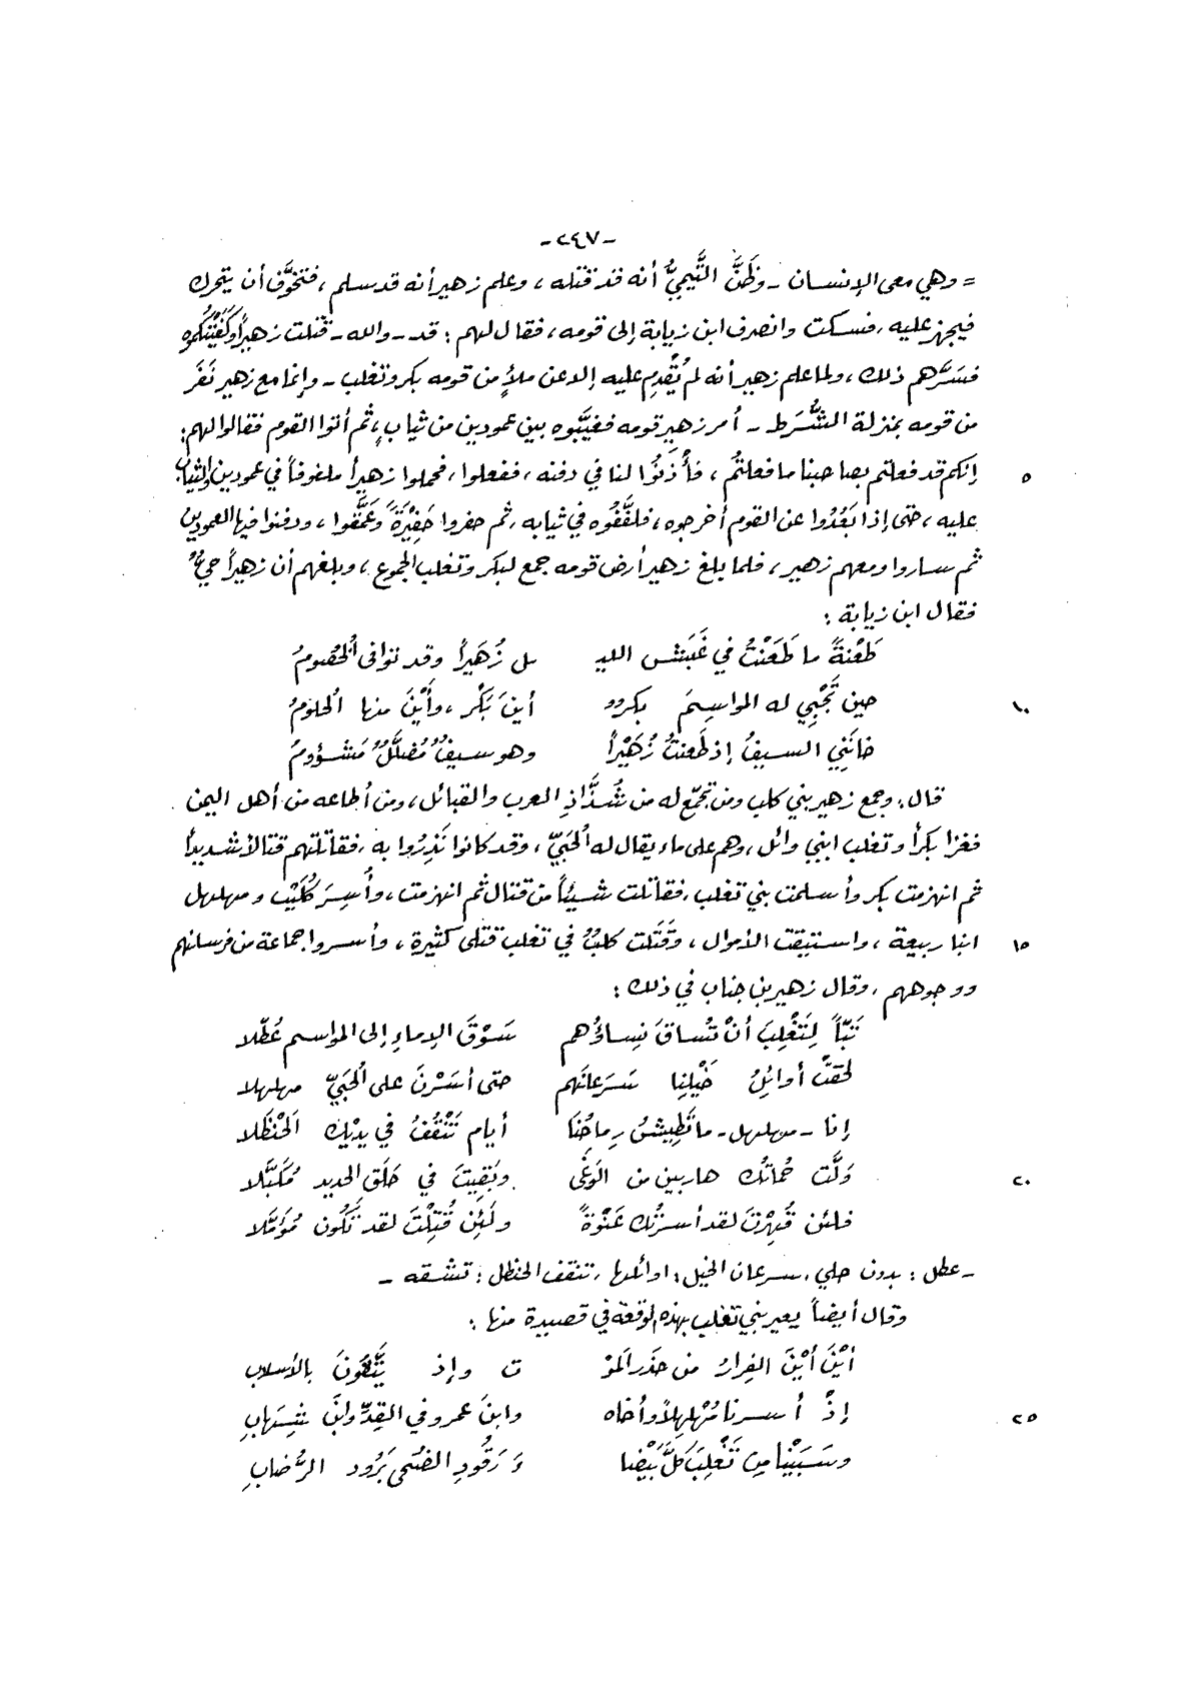 -٢٤٧-
= وهي معى الإنسان - وظَنَّ التَّيميُّ أنه قد قتله، وعلم زهير أنه قد سلم، فتخوَّف أن يتحرك
فيجهز عليه، فسكت وانصرف ابن زيابة إلى قومه، فقال لهم: قد - والله - قتلت زهيراً وكَفَيْتُكُموه
فسَرَّهم ذلك، ولما علم زهير أنه لم يُقدِم عليه إلا عن ملأٍ من قومه بكر وتغلب - وإنما مع زهير نَفَر
من قومه بمنزلة الشُّرَط - أمر زهير قومه فغيَّبوه بين عمودين من ثياب، ثم أتوا القوم فقالوا لهم:
إنكم قد فعلتم بصاحبنا ما فعلتُم، فأْذَنُوا لنا في دفنه، ففعلوا، فحملوا زهيراً ملفوفاً في عمودين والثياب ٥
عليه، حتى إذا بَعُدُوا عن القوم أخرجوه، فلفَّفُوه في ثيابه، ثم حفروا حَفِيْرَةً وعَمَّقوا، ودفنوا فيها العمودين
ثم ساروا ومعهم زهير، فلما بلغ زهير أرض قومه جمع لبكر وتغلب الجموع، وبلغهم أن زهيراً حيٌّ
فقال ابن زيابة:
طَعْنةً ما طَعَنْتُ في غَبَشِ الليـ ـل زُهَيراً وقد توافى الخُصُومُ
حين تَجْبِي له المواسِمَ بكرٌ أينَ بَكْر، وأَيْنَ منها الحلومُ ١٠
خانَنِي السيفُ إذ طَعنتُ زُهَيْراً وهو سيفٌ مُضلَّلٌ مَشؤومُ
قال: وجمع زهير بني كلب ومن تجمّع له من شُذَّاذِ العرب والقبائل، ومن أطاعه من أهل اليمن
فغزا بكراً وتغلب ابني وائل، وهم على ماء يقال له الحَبَيّ، وقد كانوا نَذِرُوا به، فقاتلتهم قتالاً شديداً
ثم انهزمت بكر وأسلمت بني تغلب، فقاتلت شيئاً من قتال ثم انهزمت، وأُسِرَ كُلَيْب ومهلهل
ابنا ربيعة، واستيقت الأموال، وقَتَلت كلبٌ في تغلب قتلى كثيرة، وأسروا جماعة من فرسانهم ١٥
ووجوههم، وقال زهير بن جناب في ذلك:
تَبّاً لِتَغْلِبَ أنْ تُساقَ نِساؤُهم سَوْقَ الإماءِ إلى المواسم عُطّلا
لحقتْ أوائِلُ خَيْلِنا سَرَعانَهم حتى أسَرْنَ على الحَبَيّ مهلهلا
إنا - مهلهل - ما تَطِيشُ رِماحُنَا أيام تَنْقُفُ في يديْكَ الحَنْظَلا
وَلَّت حُماتُك هاربين من الوَغَى وبَقِيتَ في حَلَقِ الحديد مُكَبَّلا ٢٠
فلئن قُهِرْتَ لقد أسرتُك عَنْوَةً ولَئِن قُتِلْتَ لقد تَكُون مُؤمَّلا
- عطل: بدون حلي، سرعان الخيل: اوائلها، تنقف الحنظل: تشقه -
وقال أيضاً يعير بني تغلب بهذه الوقعة في قصيدة منها:
أيْنَ أيْنَ الفِرارُ من حَذَر المَوْ تِ وإذ يَتَّقونَ بالأسلاب
إذْ أسرنا مُهَلهِلاً وأخاه وابنَ عمرو في القِدِّ وابنَ شِهابِ ٢٥
وسَبَيْنا مِن تَغْلِبَ كلَّ بَيْضا ءَ رَقُودِ الضُحى بَرُود الرُّضابِ